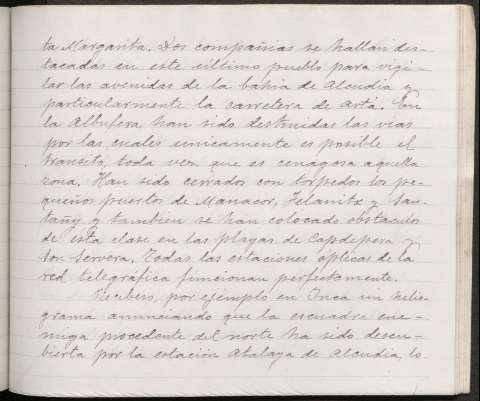 ta Margarita. Dos compañias se hallan des-
tacadas en este último pueblo para vigi-
lar las avenidas de la bahia de Alcudia y
particularmente la carretera de Artá. En
la Albufera han sido destruidas las vias
por las cuales unicamente es posible el
transito, toda vez que es cenagosa aquella
zona. Han sido cerrados con torpedos los pe-
queños puertos de Manacor, Felanitx y San-
tañy y tambien se han colocado obstaculos
de esta clase en las playas de Capdepera y
Son Servera. Todas las estaciones ópticas de la
red telegráfica funcionan perfectamente.
Recibese, por ejemplo en Inca un helio-
grama anunciando que la escuadra ene-
miga procedente del norte ha sido descu-
bierta por la estación Atalaya de Alcudia, lo